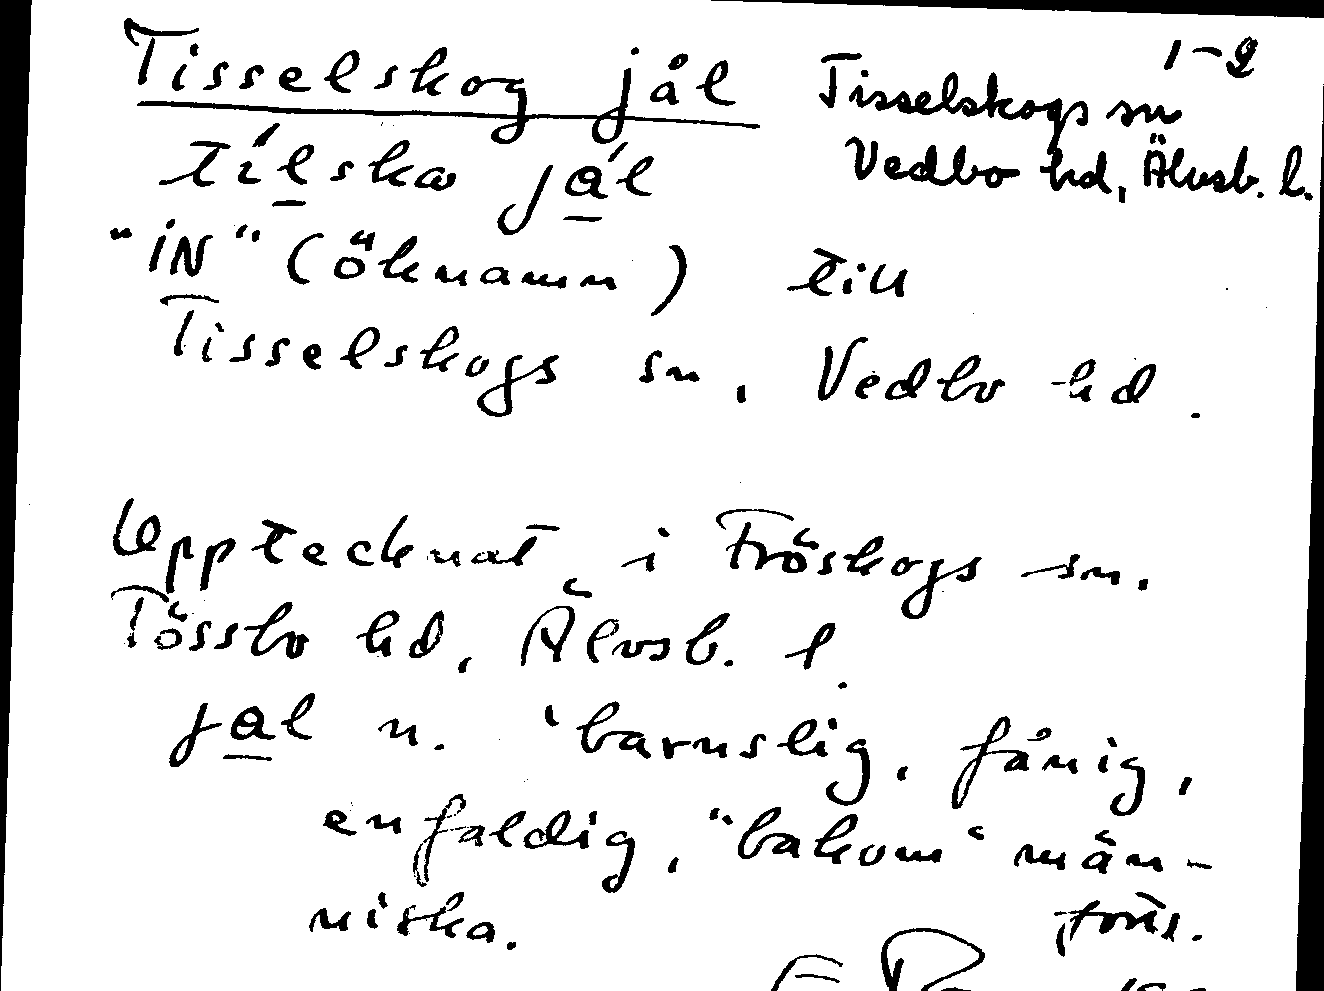 1-2
Tisselskog jål Tisselskogs sn
tílska jál Vedbo hd, Älvsb. l.
"iN" (öknamn) till
Tisselskogs sn, Vedbo hd.
Upptecknat i Fröskogs sn.
Tössbo hd, Älvsb. l.
jal n. 'barnslig, fånig,
enfaldig, "bakom" män-
niska. forts.